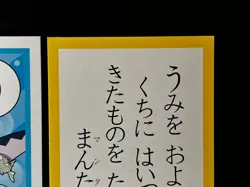 うみを およ
くちに はいつ
きたものを た
まんた
マンタ